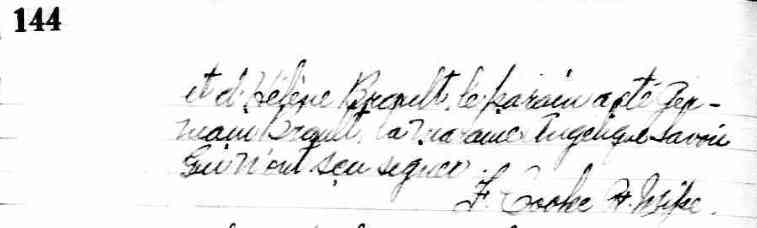 144
et d'Hélène Brault, le parain a été Ger-
main Brault, la maraine Angélique Savoie
qui n'ont sçu signer.
F. Cooke Ptre